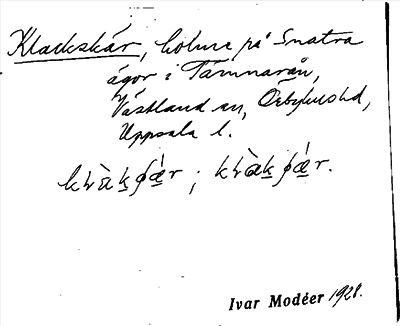 Klackskär, holme på Snatra
ägor i Tämnarån,
Västland sn, Örbyhus hd,
Uppsala l.
Ivar Modéer 1928.